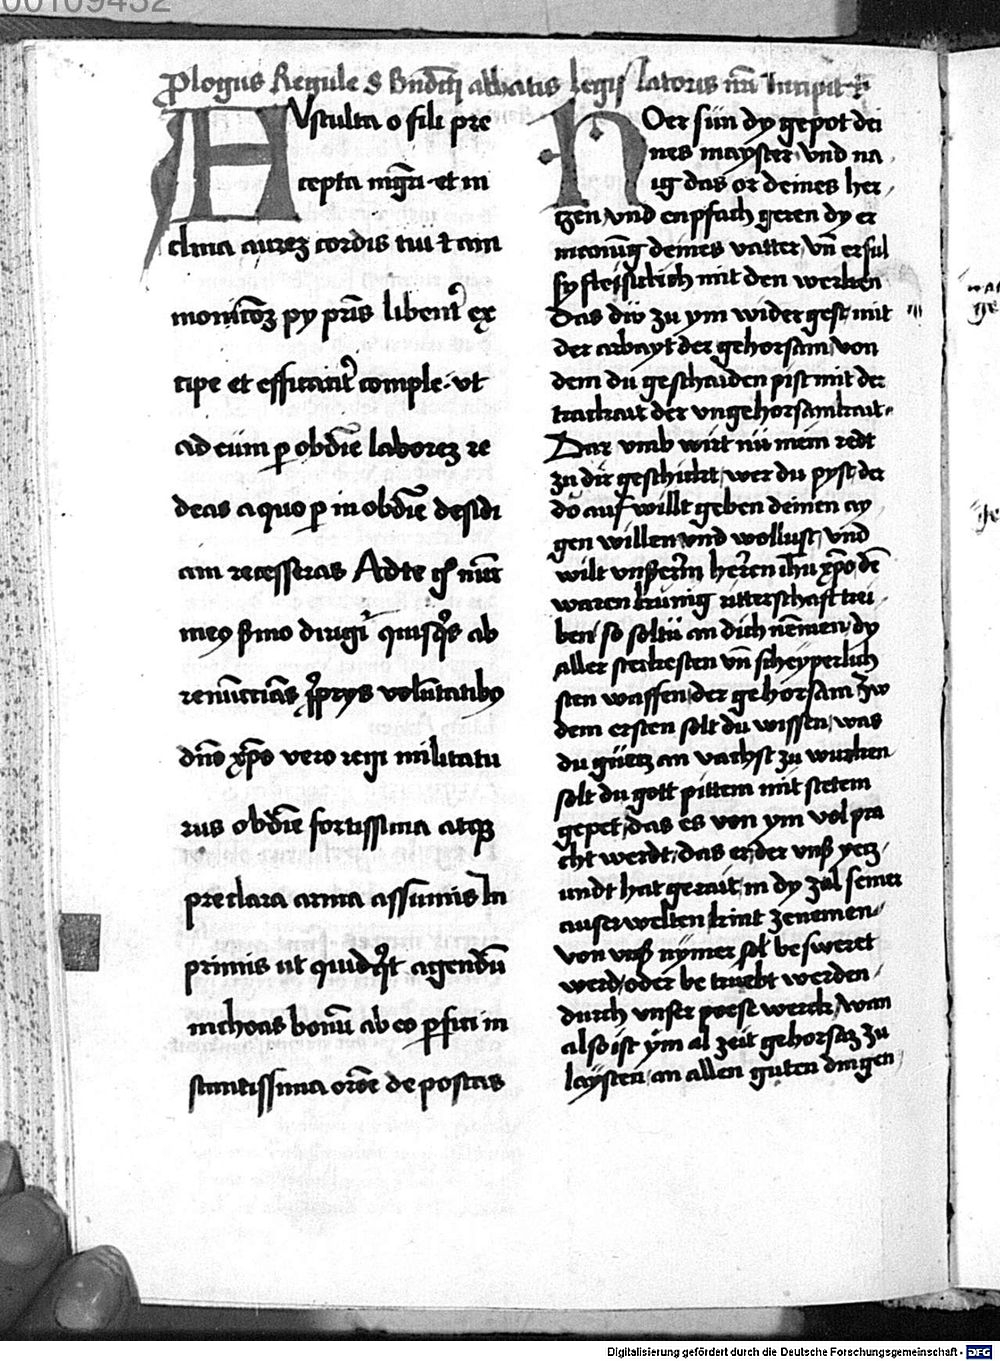 00109432
Prologus Regule S Bndcti abbatis legis latoris nri Incipit
AVsculta o fili pre
cepta mgri et in
clina aurez cordis tui & am
monicoz py pris libent ex
cipe et efficacit comple ut
ad eum p obdie laborez re
deas a quo p in obdie desidi
am recesseras Ad te g nuc
meus smo dirigit quisqs ab
renuccias pprys voluntatibus
dno xpo vero regi militatu
rus obdie fortissima atqz
preclara arma assumis In
primis ut quidqt agendu
inchoas bonu ab eo pfici in
stantissima orone depostas
HOer sün dy gepot dei
nes mayster vnd na
ig das or deines her
tzen vnd enpfach geren dy er
manüg deines vatter vn erful
sy fleissiclich mit den werken
Das div zu ym wider gest mit
der arbayt der gehorsam von
dem du geschaiden pist mit der
trackait der vngehorsamkait
Dar vmb wirt nü mein redt
zu dir geschickt wer du pyst der
do auf willt geben deinen ay
gen willen vnd wollust vnd
wilt vnserm herren ihu xpo de
waren künig ritterschaft trei
ben so soltu an dich nemen dy
aller sterkesten vn scheyperlich
sten waffen der gehorsam zw
dem ersten solt du wissen was
du gütz an vachst zu wurken
solt du gott pittem mit stetem
gepet das es von ym vol pra
cht werdt das er der vnß yetz
undt hat gerait in dy zal seiner
auserwelten kint zenemen
von vnß nymer sol besweret
werd oder be truebt werden
durch vnser poese werck wan
also ist ym al zeit gehorsaz zu
laysten an allen guten dingen
Digitalisierung gefördert durch die Deutsche Forschungsgemeinschaft - DFG